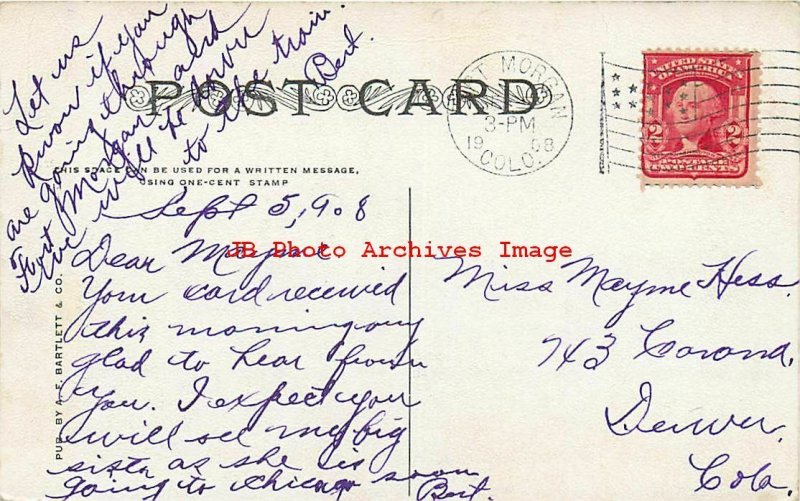 Let us
know if you
are going through
Fort Morgan and
we will go down
to the train.
Bert.
POST CARD
THIS SPACE CAN BE USED FOR A WRITTEN MESSAGE,
USING ONE-CENT STAMP
FORT MORGAN
3-PM
1908
COLO.
UNITED STATES
OF AMERICA
2 2
POSTAGE
TWO CENTS
Sept 5, 9.8
Dear Mayme
JB Photo Archives Image
Your card received
this morning
glad to hear from
you. I expect you
will see my big
sister as she is
going to Chicago soon
Bert.
Miss Mayme Hess.
743 Corona,
Denver,
Colo.
PUB. BY A. E. BARTLETT & CO.